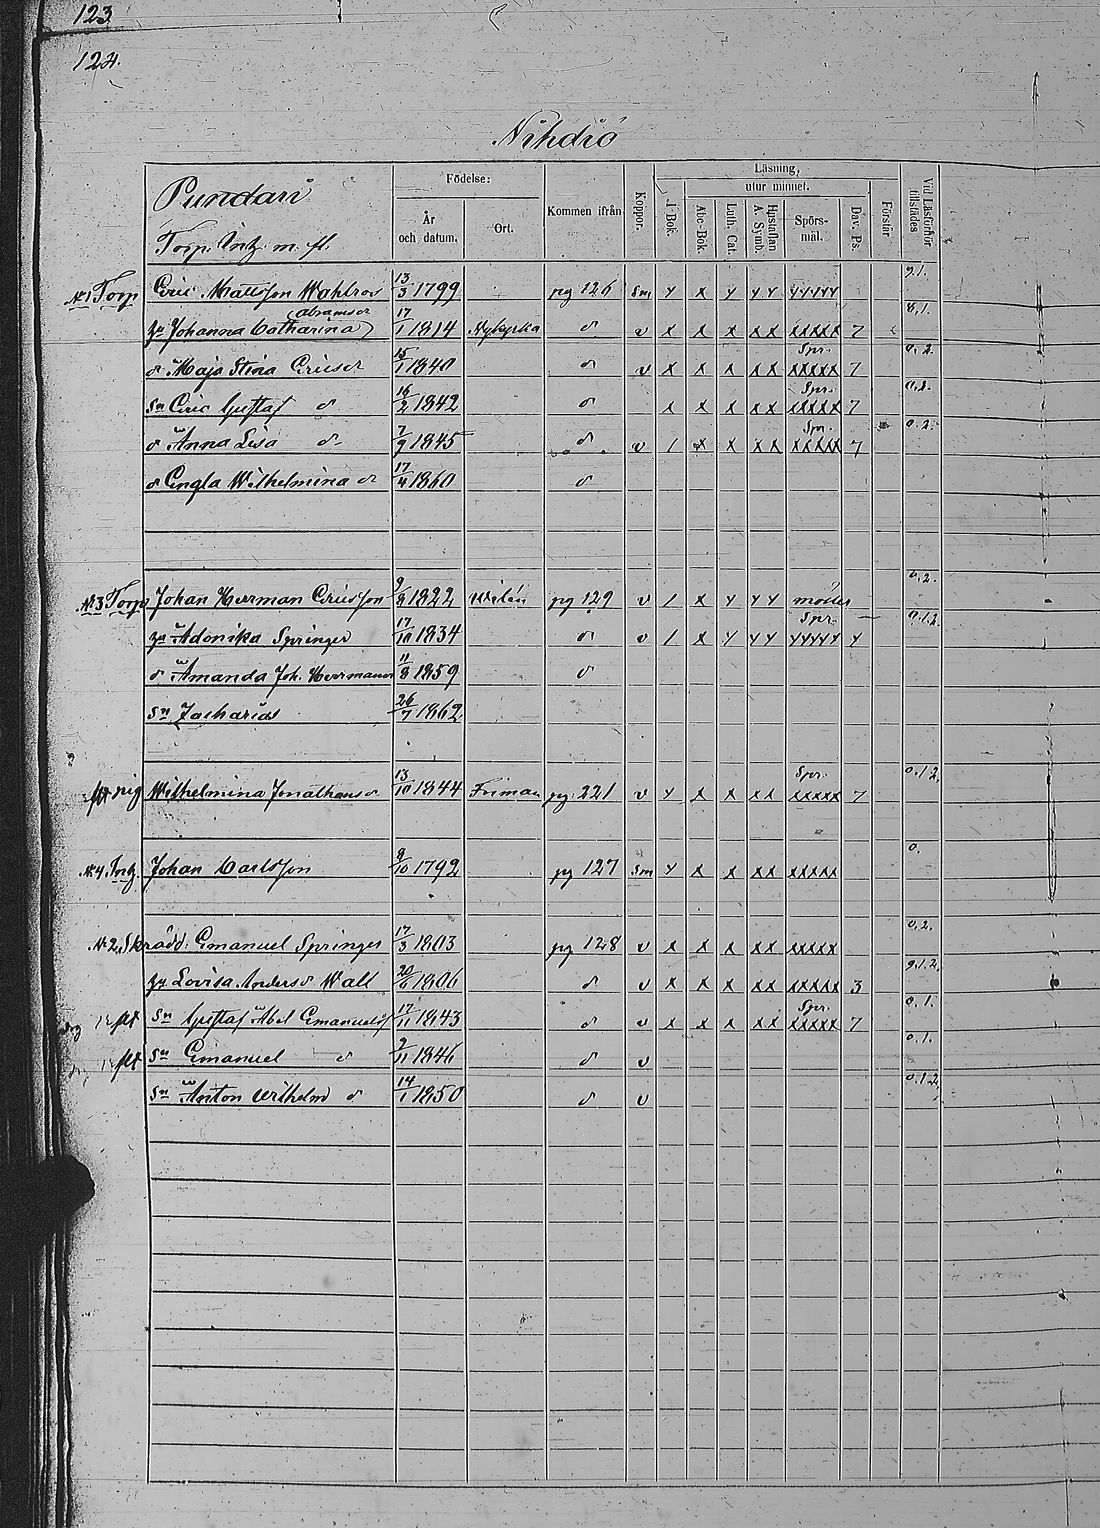 123
124.
Nihdiö
Pundari
Torp. Intz m. fl.
Födelse:
År och datum.
Ort.
Kommen ifrån
Koppor.
Läsning,
I Bok.
utur minnet.
Abc-Bok.
Luth. Cat.
Hustaflan A. Symb.
Spörs-mål.
Dav. Ps.
Förstår
Vid Läsförhör tillstädes
№1 Torp Eric Mattsson Wahlros 13/3 1799 pg 126 Sm y x y y y y y y y y 9.1.
Abramsdr
Johanna Catharina 17/1 1814 Nykyrka d v x x x x x x x x x x 7 8.1.
d Maja Stina Ericsdr 15/1 1840 d v x x x x x Spr. x x x x x 7 0.2.
Sn Eric Gustaf d 16/2 1842 d x x x x x Spr. x x x x x 7
d Anna Lisa d 7/9 1845 d v / x x x x Spr. x x x x x 7 0.2.
d Engla Wilhelmina d 17/4 1860 d
№3 Torp Johan Herman Ericsson 9/8 1822 pg 129 v / x y y y 0.2.
Adonika Springer 17/10 1834 d v / x y y y Spr. y y y y y y 0.1.2.
d Amanda Joh. Hermansd 11/8 1859 d
Sn Zacharias 26/7 1862
pig Wilhelmina Jonathansd 13/10 1844 pg. 221 v y x x x x Spr. x x x x x 7 0.1.2.
№4 Intz. Johan Carlsson 9/10 1792 pg 127 Sm y x x x x x x x x x 0.
№2 Skrädd: Emanuel Springer 17/3 1803 pg 128 v x x x x x x x x x x 0.2.
Lovisa Andersd Wall 20/6 1806 d v x x x x x x x x x x 3 9.1.2.
Sn Gustaf Abel Emanuelss 17/11 1843 d v x x x x x Spr. x x x x x 7 0.1.
Sn Emanuel d 9/11 1846 d v 0.1.
Sn Anton Wilhelm d 14/1 1850 d v 0.1.2.